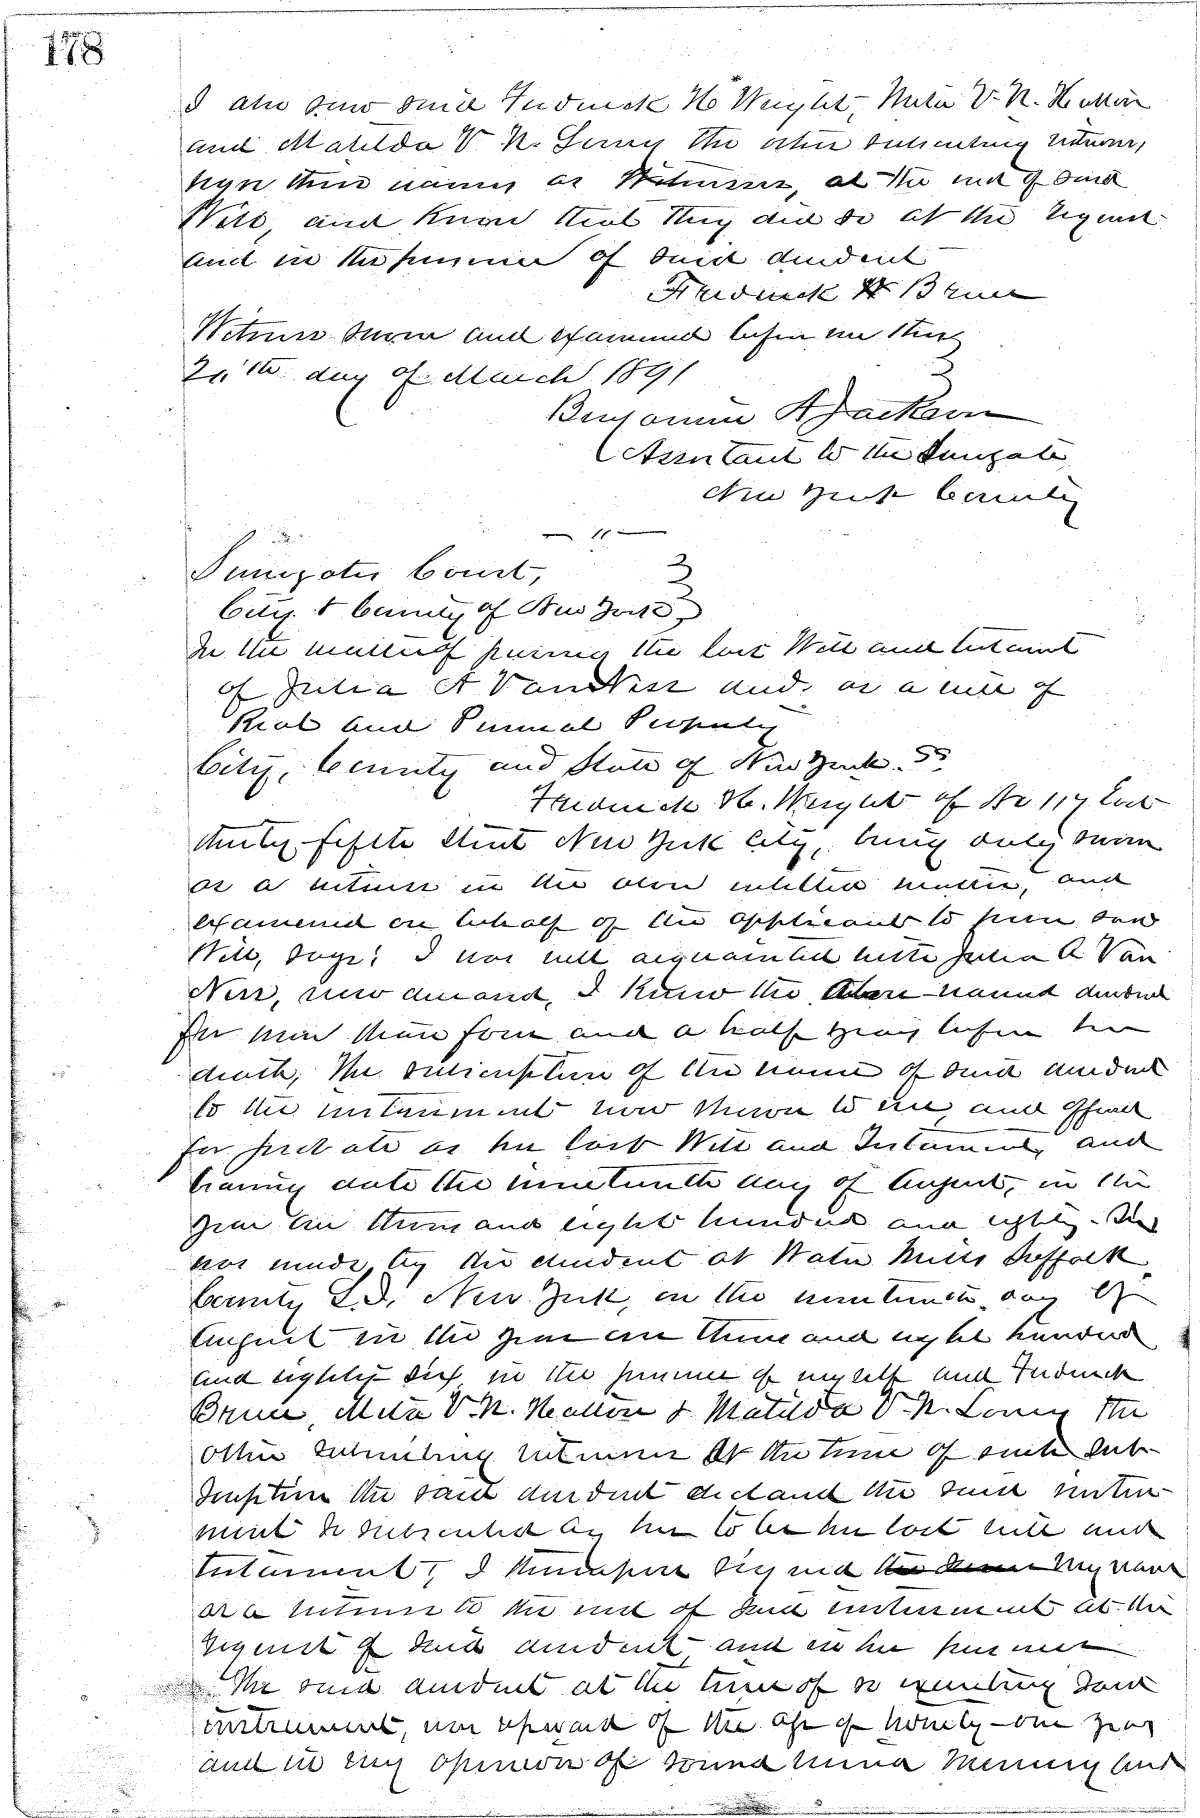 178
I also saw said Frederick H. Wright, Meta V. N. Hatton
and Matilda V. N. Loney the other subscribing witnesses,
sign their names as Witnesses, at the end of said
Will, and know that they did so at the request
and in the presence of said decedent
Frederick W Bruce
Witness sworn and examined before me this
day of March 1891
Benjamin A Jackson
Assistant to the Surrogate
New York County
— " —
Surrogates Court,
City & County of New York
In the matter of proving the last Will and testament
of Julia A Van Ness decd. as a will of
Real and Personal Property
City, County and State of New York. SS.
Frederick H. Wright of No 117 East
thirty-fifth Street New York City, being duly sworn
as a witness in the above entitled matter, and
examined on behalf of the applicant to prove said
Will, says: I was well acquainted with Julia A Van
Ness, now deceased, I knew the above-named decedent
for more than four and a half years before her
death, The subscription of the name of said decedent
to the instrument now shown to me, and offered
for probate as her last Will and Testament, and
bearing date the nineteenth day of August, in the
year one thousand eight hundred and eighty-six
was made by the decedent at Water Mills Suffolk
County L.I. New York, on the nineteenth day of
August in the year one thousand eight hundred
and eighty six in the presence of myself and Frederick
Bruce, Meta V. N. Hatton & Matilda V. N. Loney the
other subscribing witnesses At the time of such sub-
scription the said decedent declared the said instru-
ment so subscribed by her to be her last will and
testament, I thereupon signed my name
as a witness to the end of said instrument at the
request of said decedent, and in her presence
The said decedent at the time of so executing said
instrument, was upward of the age of twenty-one years
and in my opinion of sound mind memory and